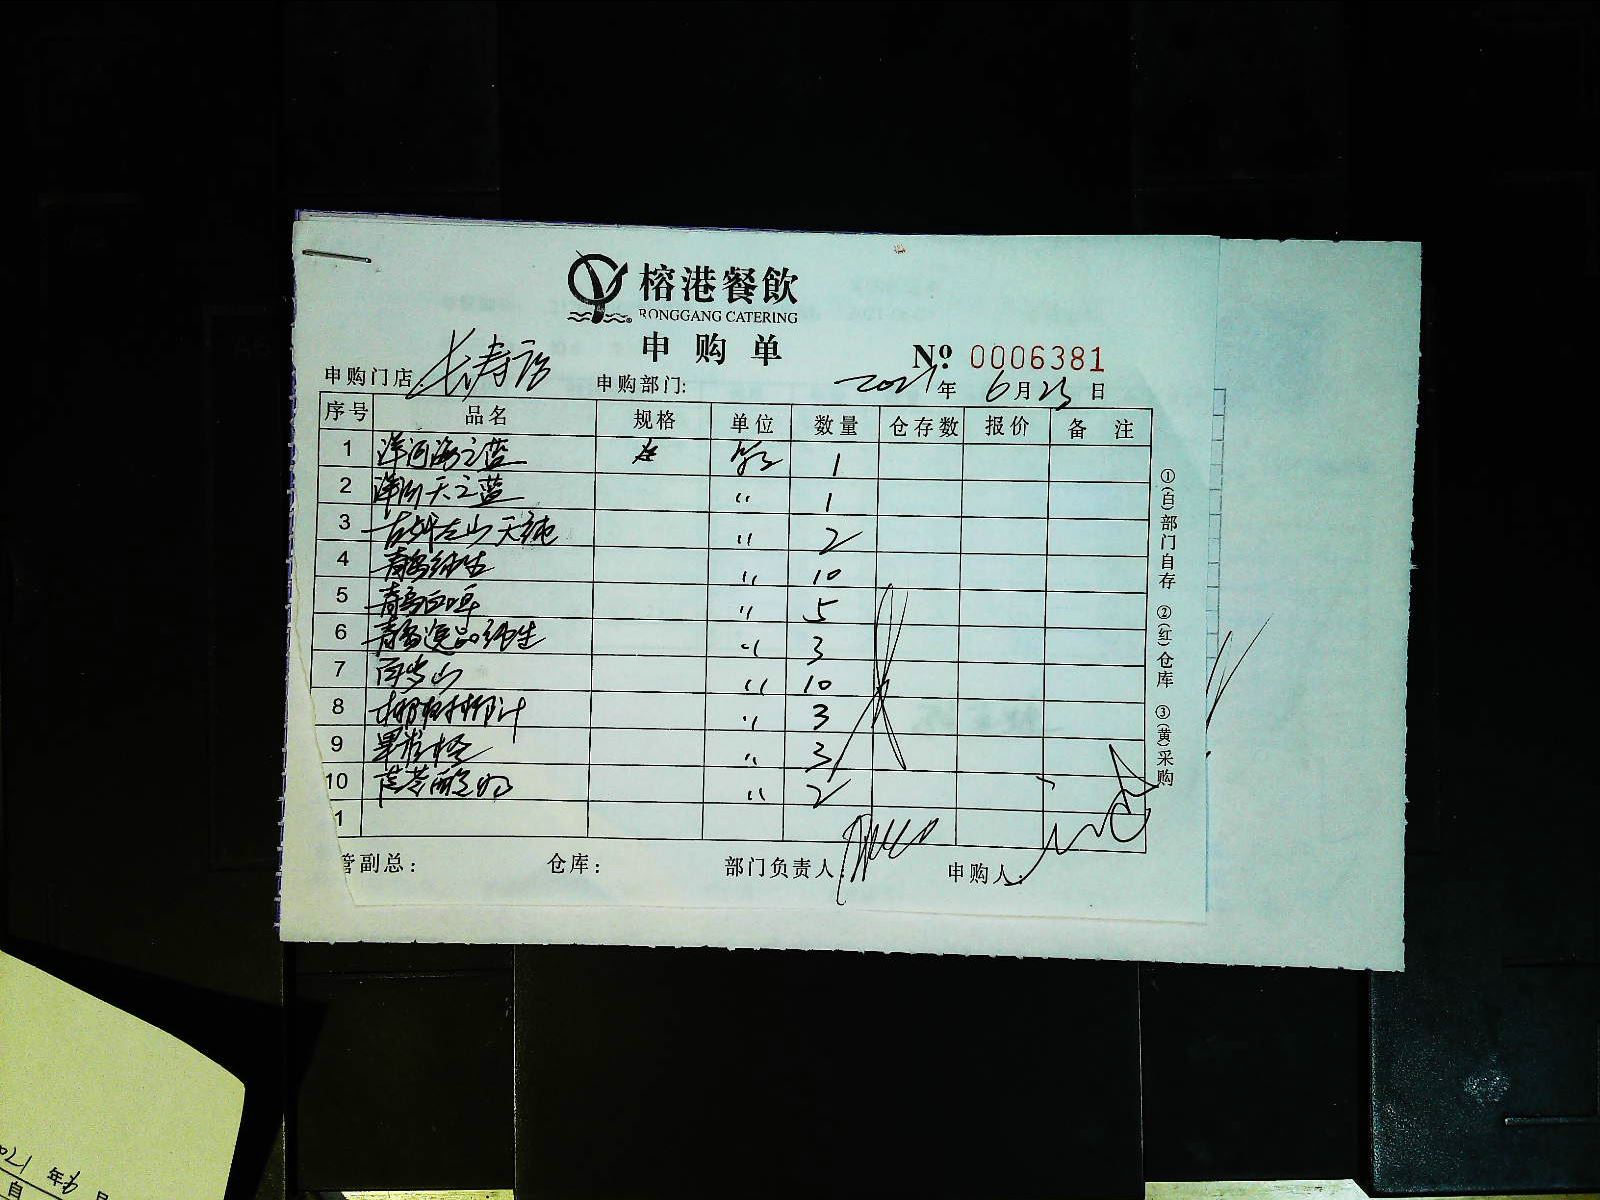 榕港餐飲
RONGGANG CATERING
申购单
№ 0006381
申购门店: 长寿店 申购部门: 2021年6月25日
序号 品名 规格 单位 数量 仓存数 报价 备注
1 洋河海之蓝 1
2 洋河天之蓝 〃 1
3 天纯 〃 2
4 青岛纯生 〃 10
5 青岛白啤 〃 5
6 青岛逸品纯生 〃 3
7 百岁山 〃 10
8 椰树椰汁 〃 3
9 果粒橙 〃 3
10 酸奶 〃 2
1
管副总: 仓库: 部门负责人: 申购人:
①(白)部门自存 ②(红)仓库 ③(黄)采购
年 月
自